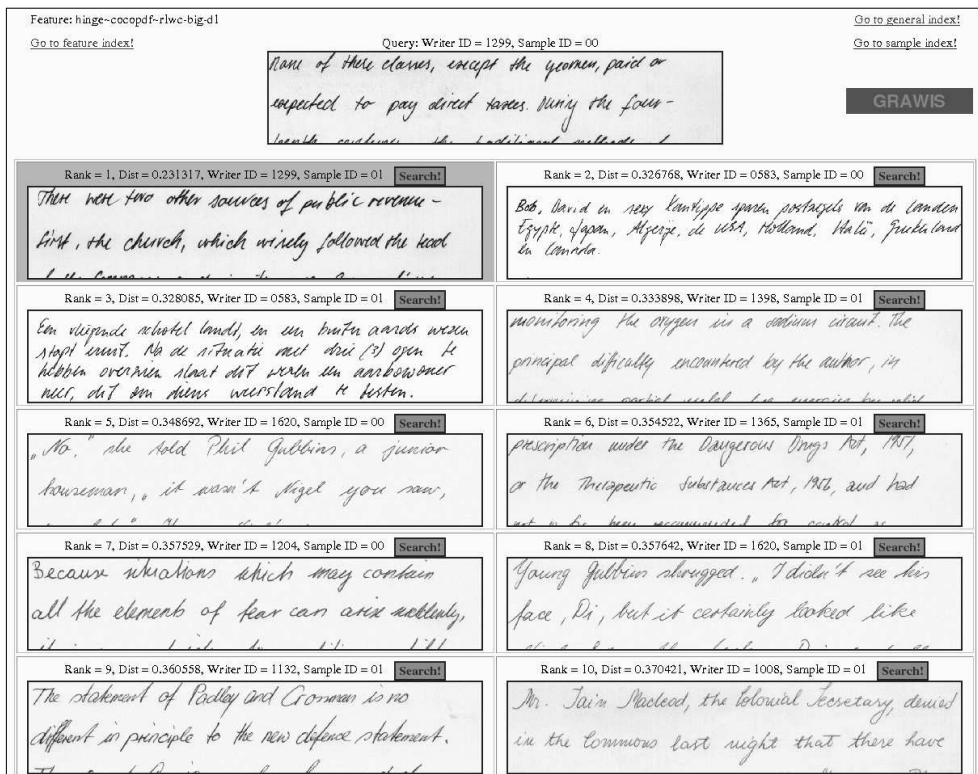 Feature: hinge~cocopdf~rlwc-big-d1
Go to general index!
Go to feature index!
Query: Writer ID = 1299, Sample ID = 00
Go to sample index!
None of these classes, except the yeomen, paid or
expected to pay direct taxes. During the four-
the traditional methods of
GRAWIS
Rank = 1, Dist = 0.231317, Writer ID = 1299, Sample ID = 01 Search!
There were two other sources of public revenue -
first, the church, which wisely followed the lead
Rank = 2, Dist = 0.326768, Writer ID = 0583, Sample ID = 00 Search!
Bob, David en sexy Xantippe sparen postzegels van de landen
Egypte, Japan, Algerije, de USA, Holland, Italië, Griekenland
en Canada.
Rank = 3, Dist = 0.328085, Writer ID = 0583, Sample ID = 01 Search!
Een vliegende schotel landt, en een buiten aards wezen
stapt eruit. Na de situatie met drie (3) ogen te
hebben overzien slaat dit wezen een aardbewoner
neer, dit om diens weerstand te testen.
Rank = 4, Dist = 0.333898, Writer ID = 1398, Sample ID = 01 Search!
monitoring the oxygen in a sodium circuit. The
principal difficulty encountered by the author, in
determining partial
Rank = 5, Dist = 0.348692, Writer ID = 1620, Sample ID = 00 Search!
„No," she told Phil Gubbins, a junior
houseman, „it wasn't Nigel you saw,
Rank = 6, Dist = 0.354522, Writer ID = 1365, Sample ID = 01 Search!
prescription under the Dangerous Drugs Act, 1951,
or the Therapeutic Substances Act, 1956, and had
not so far been recommended for control as
Rank = 7, Dist = 0.357529, Writer ID = 1204, Sample ID = 00 Search!
Because situations which may contain
all the elements of fear can arise suddenly,
Rank = 8, Dist = 0.357642, Writer ID = 1620, Sample ID = 01 Search!
Young Gubbins shrugged. „I didn't see his
face, Di, but it certainly looked like
Rank = 9, Dist = 0.360558, Writer ID = 1132, Sample ID = 01 Search!
The statement of Padley and Crosman is no
different in principle to the new defence statement.
Rank = 10, Dist = 0.370421, Writer ID = 1008, Sample ID = 01 Search!
Mr. Iain Macleod, the Colonial Secretary, denied
in the Commons last night that there have